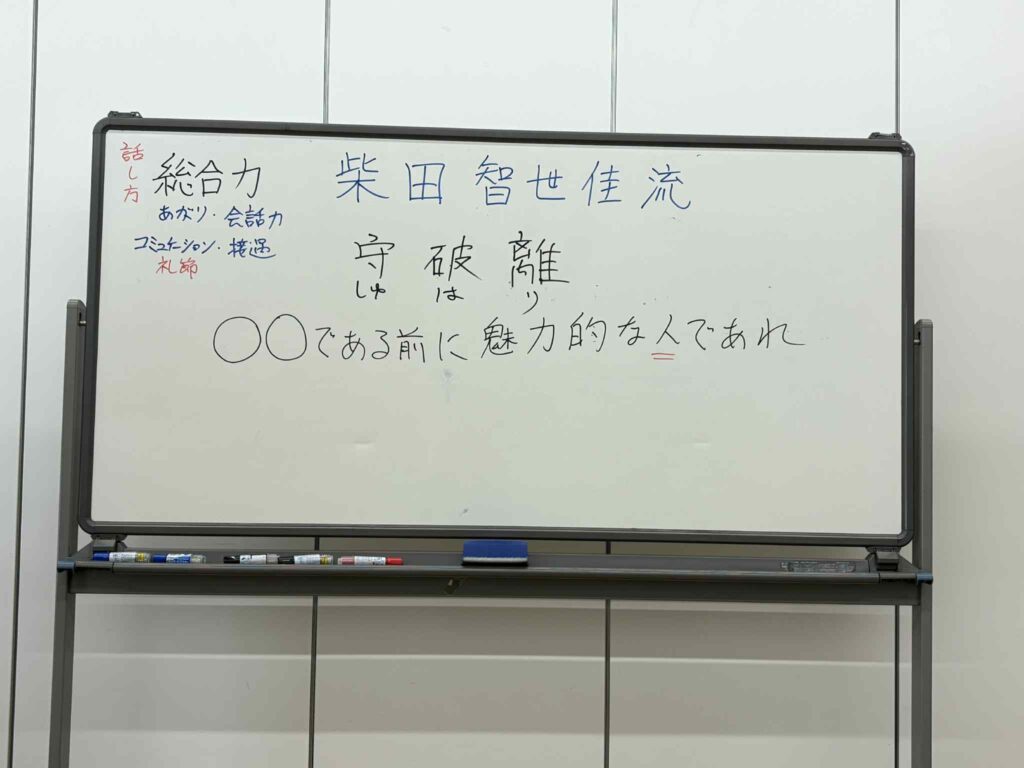 話し方
総合力
柴田智世佳流
あがり・会話力
コミュケーション・接遇
礼節
守破離
しゅ は り
〇〇である前に魅力的な人であれ